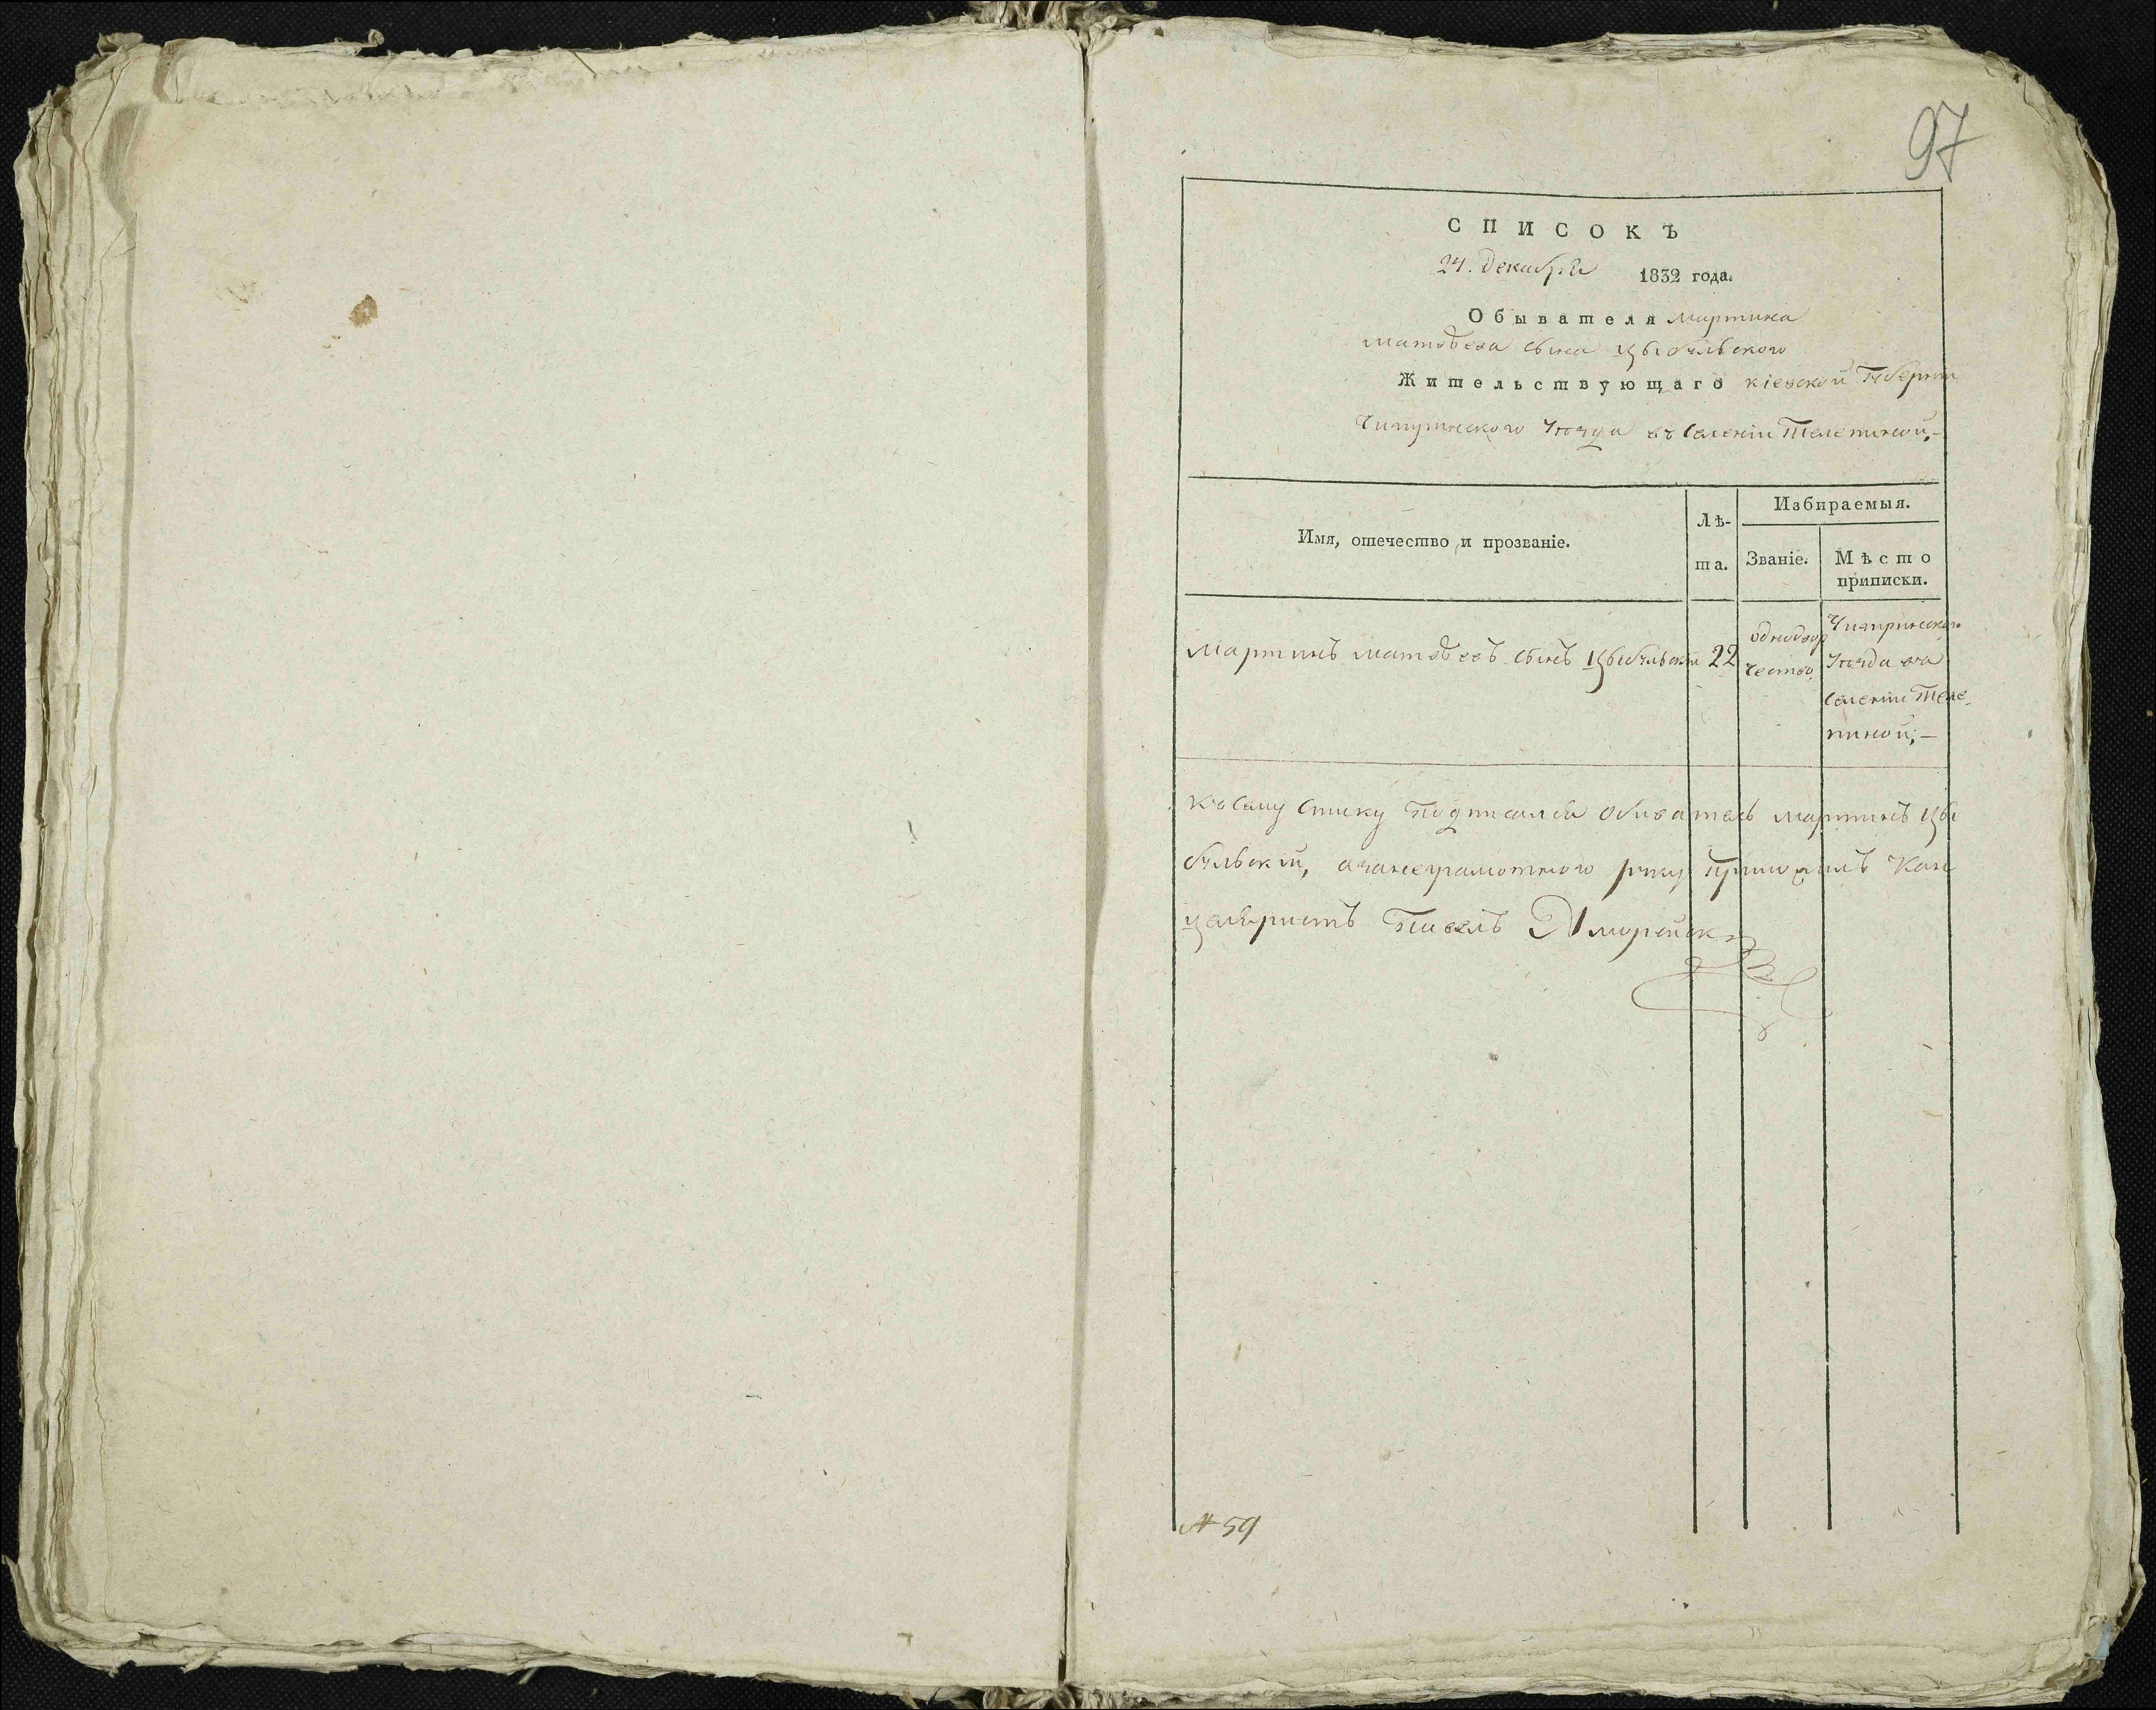 97
СПИСОКЪ
24. декабря 1832 года.
Обывателя мартина
матвѣева сына Цыбульского
Жительствующаго кіевской Губерніи
Чигиринского уѣзда въ селеніи Телепиной,-
Имя, отечество и прозваніе.
Лѣ-
та.
Избираемыя.
Званіе.
Мѣсто
приписки.
мартинъ матвѣевъ сынъ Цыбульскій 22
однодвор
чество
Чигиринского
уѣзда въ
селеніи Теле-
пиной,—
къ сему списку подписался обиватель мартинъ Цы
бульскій, а за неграмотного руку приложилъ Кан
целяристъ Павелъ
№ 59